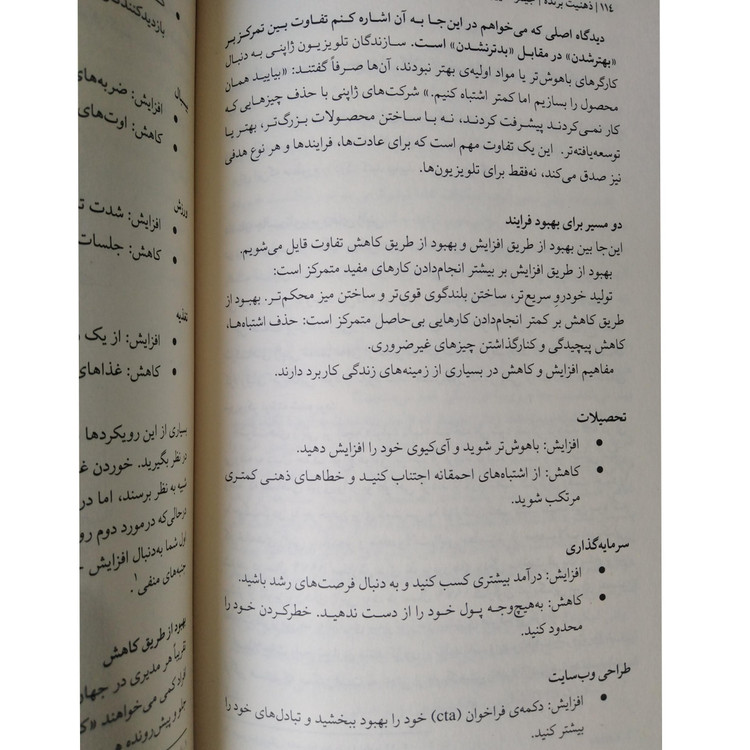 ۱۱۴ | ذهنیت برنده |
دیدگاه اصلی که می‌خواهم در این‌جا به آن اشاره کنم تفاوت بین تمرکز بر
«بهترشدن» در مقابل «بدترنشدن» است. سازندگان تلویزیون ژاپنی به دنبال
کارگرهای باهوش‌تر یا مواد اولیه‌ی بهتر نبودند، آن‌ها صرفاً گفتند: «بیایید همان
محصول را بسازیم اما کمتر اشتباه کنیم.» شرکت‌های ژاپنی با حذف چیزهایی که
کار نمی‌کردند پیشرفت کردند، نه با ساختن محصولات بزرگ‌تر، بهتر یا
توسعه‌یافته‌تر. این یک تفاوت مهم است که برای عادت‌ها، فرایندها و هر نوع هدفی
نیز صدق می‌کند، نه‌فقط برای تلویزیون‌ها.
دو مسیر برای بهبود فرایند
این‌جا بین بهبود از طریق افزایش و بهبود از طریق کاهش تفاوت قایل می‌شویم.
بهبود از طریق افزایش بر بیشتر انجام‌دادن کارهای مفید متمرکز است:
تولید خودرو سریع‌تر، ساختن بلندگوی قوی‌تر و ساختن میز محکم‌تر. بهبود از
طریق کاهش بر کمتر انجام‌دادن کارهایی بی‌حاصل متمرکز است: حذف اشتباه‌ها،
کاهش پیچیدگی و کنارگذاشتن چیزهای غیرضروری.
مفاهیم افزایش و کاهش در بسیاری از زمینه‌های زندگی کاربرد دارند.
تحصیلات
• افزایش: باهوش‌تر شوید و آی‌کیوی خود را افزایش دهید.
• کاهش: از اشتباه‌های احمقانه اجتناب کنید و خطاهای ذهنی کمتری
مرتکب شوید.
سرمایه‌گذاری
• افزایش: درآمد بیشتری کسب کنید و به دنبال فرصت‌های رشد باشید.
• کاهش: به‌هیچ‌وجه پول خود را از دست ندهید. خطرکردن خود را
محدود کنید.
طراحی وب‌سایت
• افزایش: دکمه‌ی فراخوان (cta) خود را بهبود ببخشید و تبادل‌های خود را
بیشتر کنید.
بازدیدکنند
• افزایش: ضربه‌های
• کاهش: اوت‌های
ورزش
• افزایش: شدت
• کاهش: جلسات
تغذیه
• افزایش: از یک
• کاهش: غذاهای
بسیاری از این رویکردها
در نظر بگیرید. خوردن
شبیه به نظر برسند، اما در
درحالی‌که درمورد دوم
اول شما به‌دنبال افزایش
جنبه‌های منفی۱.
بهبود از طریق کاهش
تقریباً هر مدیری در جهان
افراد کمی می‌خواهند
جلو و پیش‌رونده